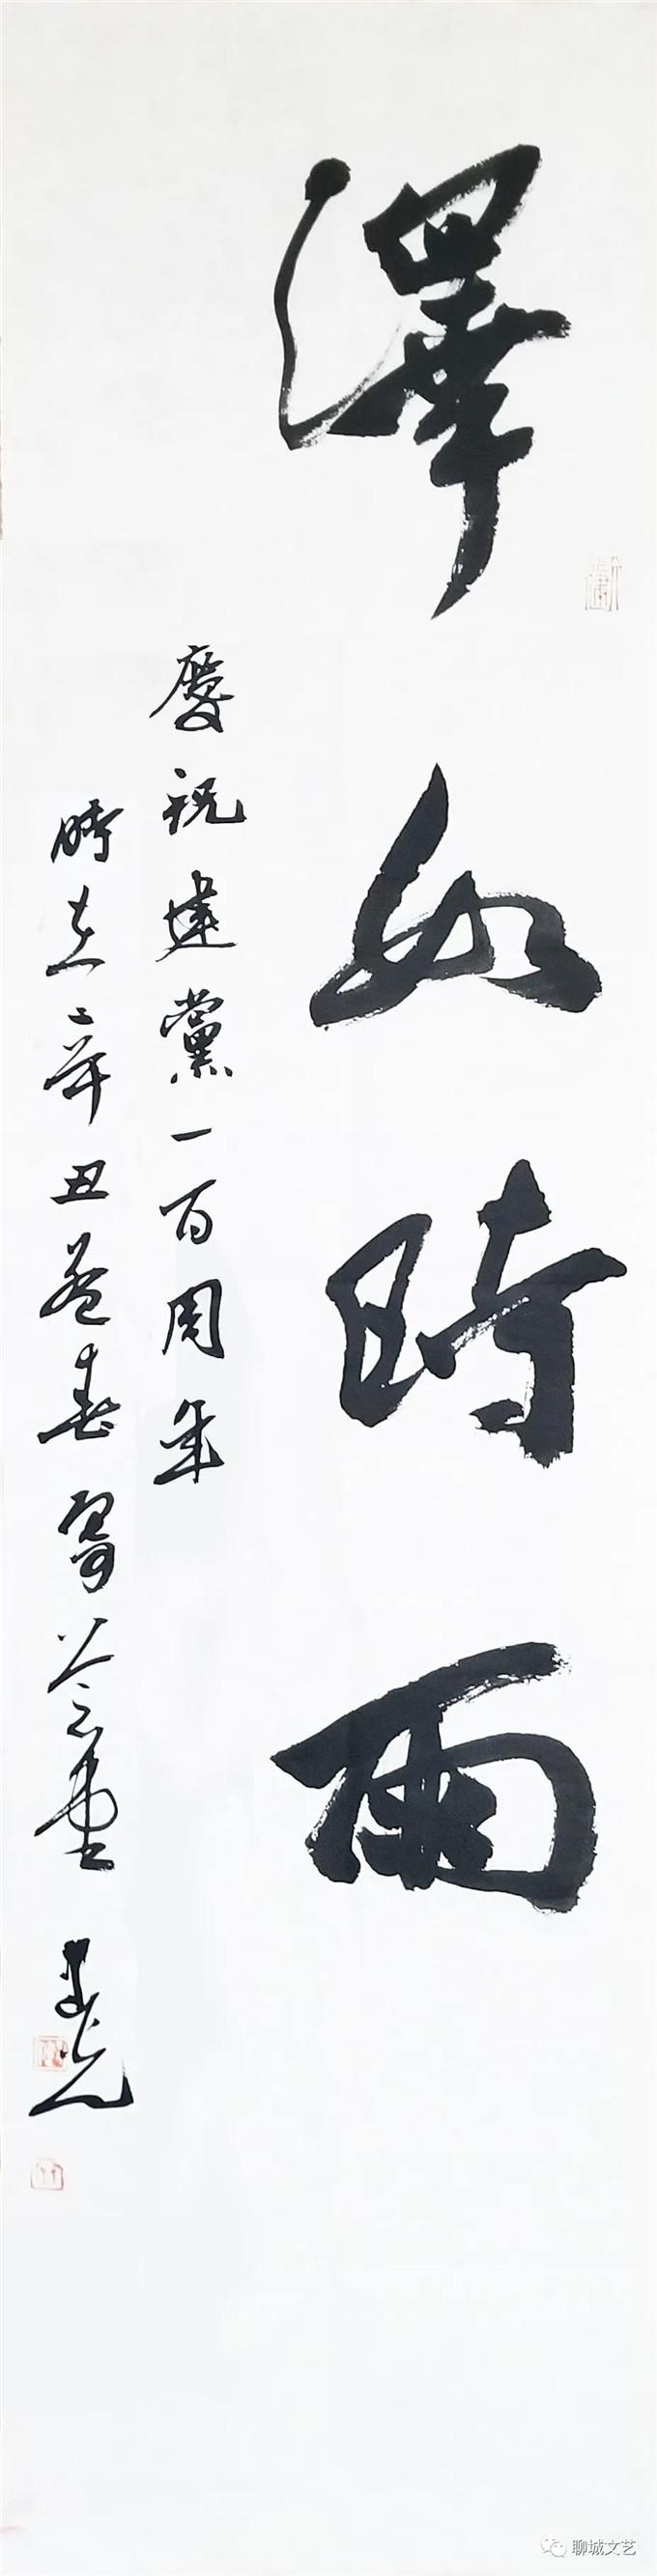 澤如時雨
慶祝建黨一百周年
時在辛丑暮春寫
聊城文艺